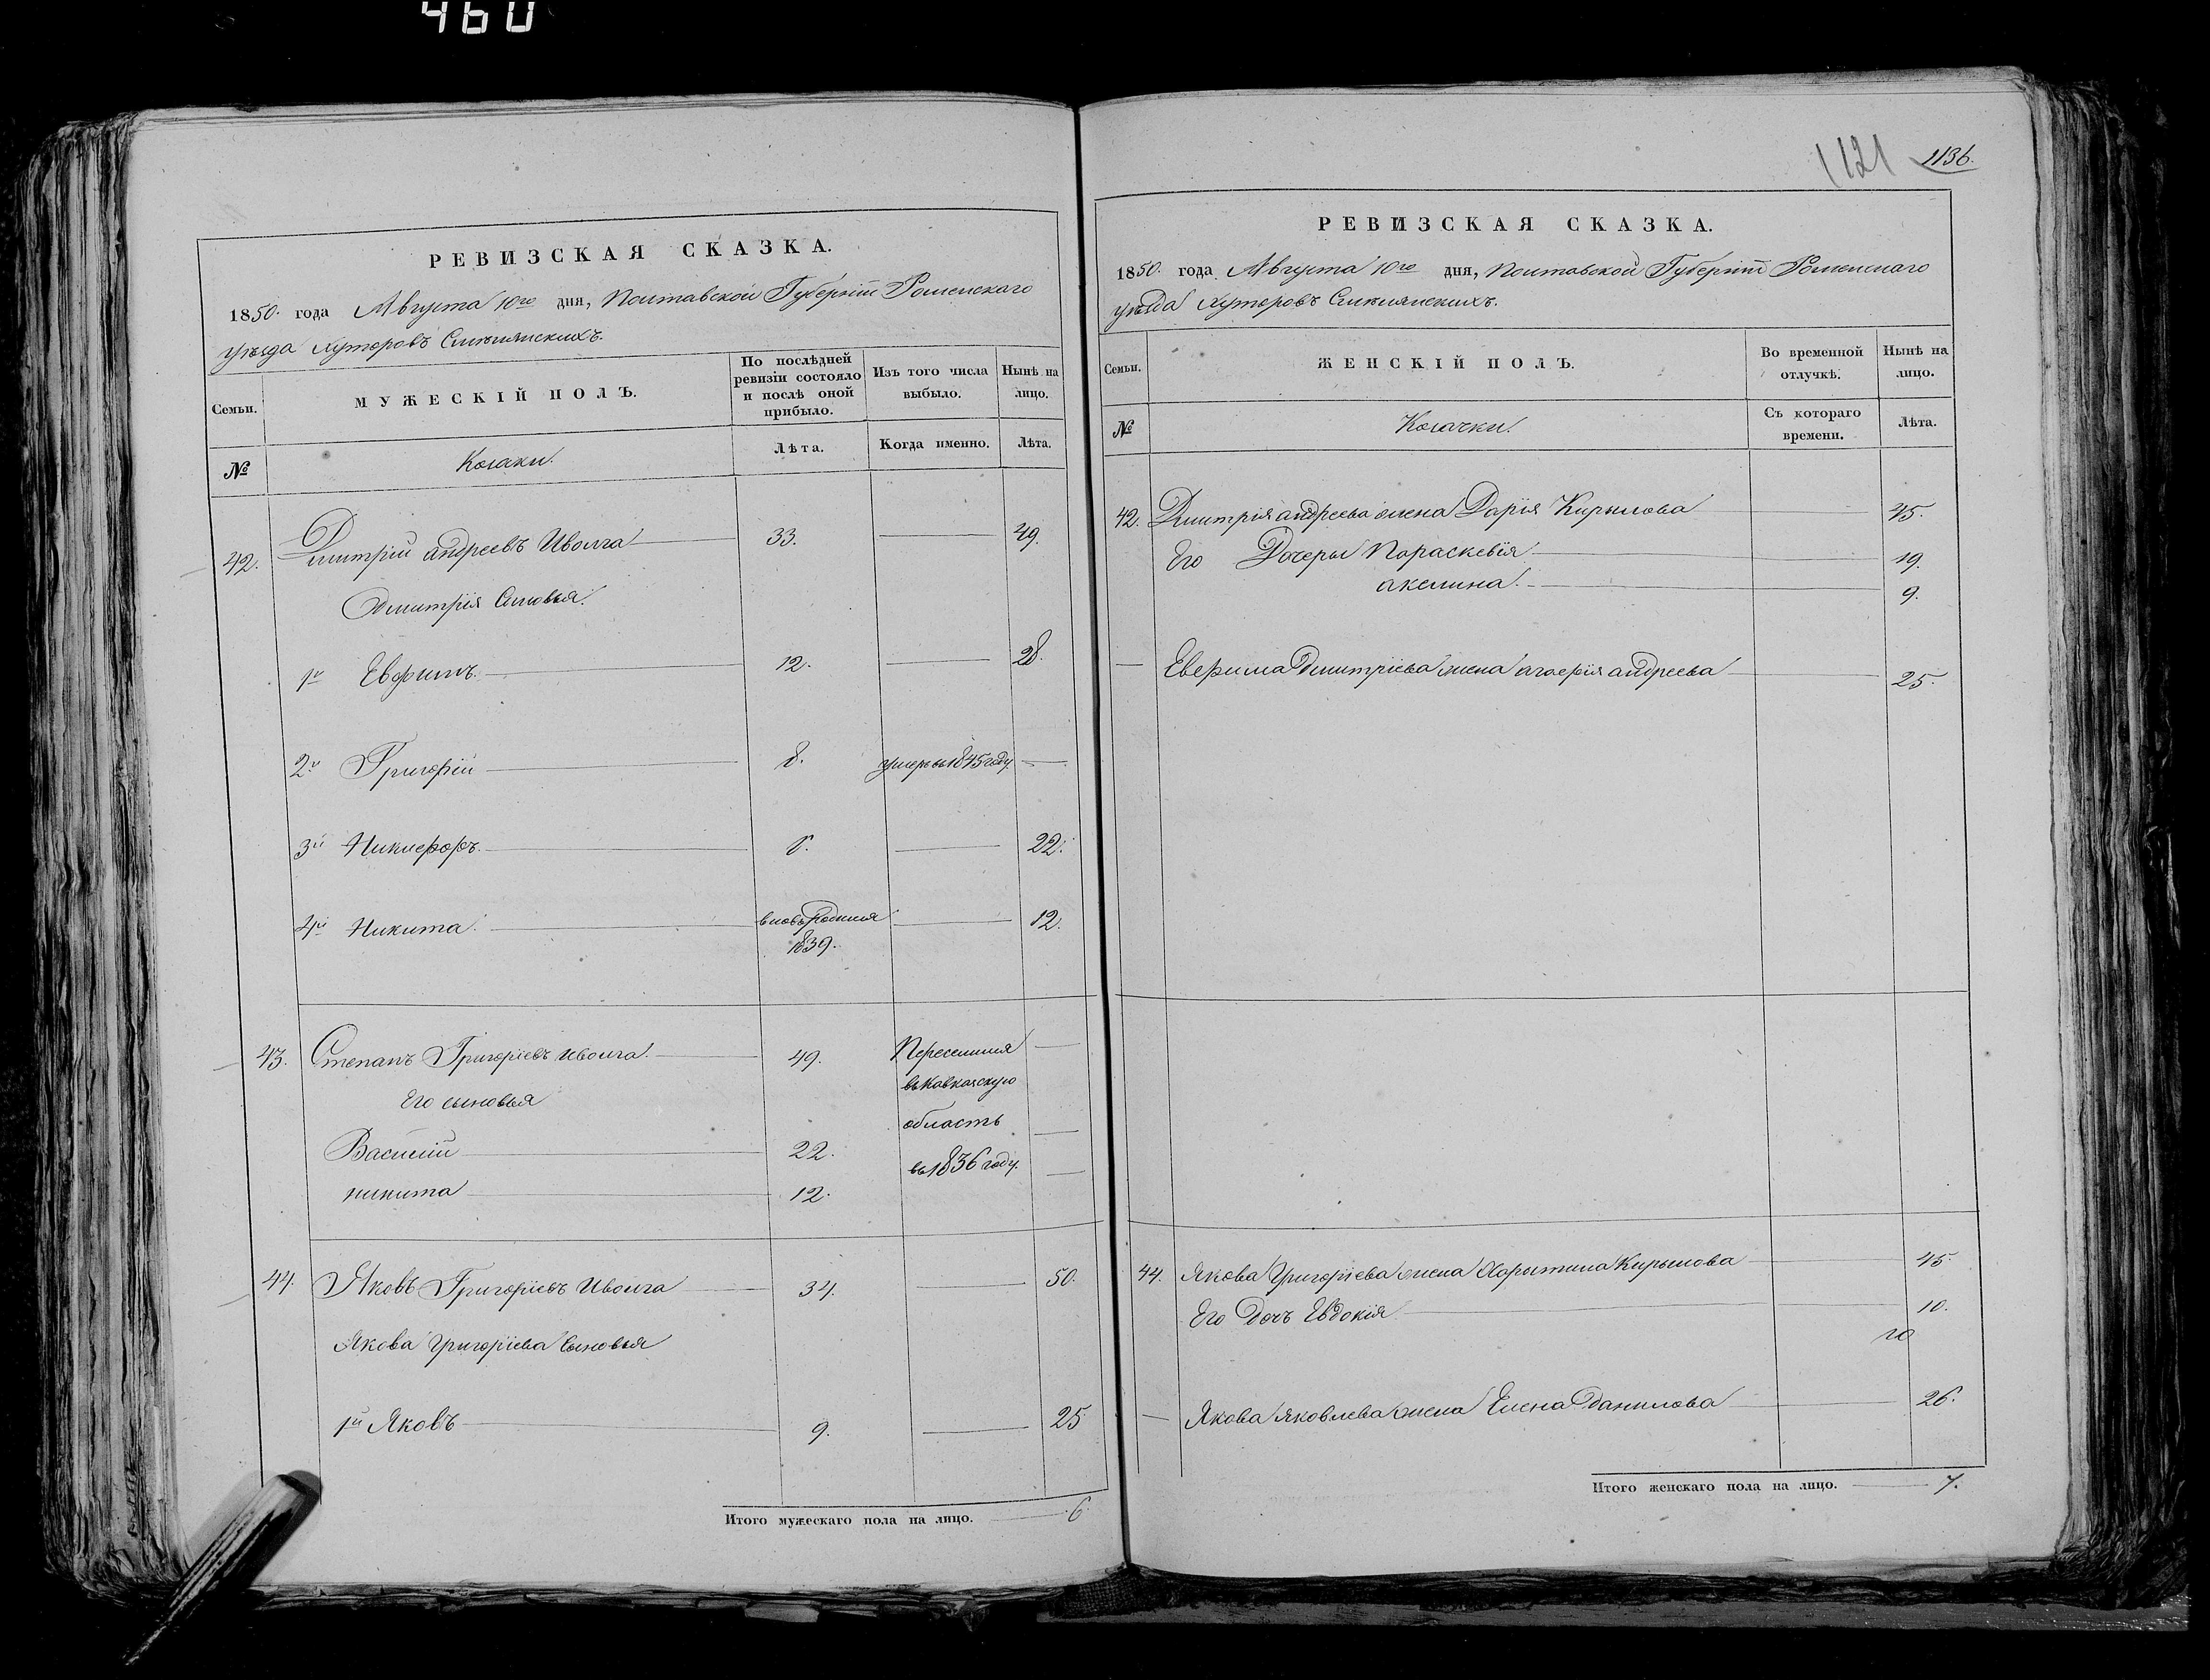 460
1121 1136.
РЕВИЗСКАЯ СКАЗКА.
1850. года Августа 10го дня, Полтавской Губерніи Роменскаго
уѣзда Хуторовъ
Семьи.
МУЖЕСКІЙ ПОЛЪ.
По послѣдней ревизіи состояло и послѣ оной прибыло.
Изъ того числа выбыло.
Нынѣ на лицо.
№
Козаки.
Лѣта.
Когда именно.
Лѣта.
42. Дмитрій андреевъ Иволга 33. 49.
Дмитрія Сыновья.
1й Евфимъ. 12. 28.
2й Григорій 8. умеръ въ 1845 году
3й Никифоръ. 22.
4й Никита. вновь родился 12.
1839.
43. Степанъ Григоріевъ Иволга. 49. Переселился
Его сыновья въ Кавказскую
область
Василій 22. въ 1836 году.
никита 12.
44. Яковъ Григоріевъ Иволга 34. 50.
Якова Григоріева Сыновья
1й Яковъ 9. 25
Итого мужескаго пола на лицо. 6.
РЕВИЗСКАЯ СКАЗКА.
1850. года Августа 10го дня, Полтавской Губерніи Роменскаго
уѣзда Хуторовъ
Семьи.
ЖЕНСКІЙ ПОЛЪ.
Во временной отлучкѣ.
Нынѣ на лицо.
№
Козачки.
Съ котораго времени.
Лѣта.
42. Дмитрія андреева жена Дарія Кирылова 45.
Его Дочеры Параскевія 19.
акелина. 9.
Евфима Дмитріева жена агафія андреева 25.
44. Якова Григоріева жена Харытина Кирылова 45.
Его Дочъ Евдокія 10.
10
Якова Яковлева жена Елена Данилова 26.
Итого женскаго пола на лицо. 7.